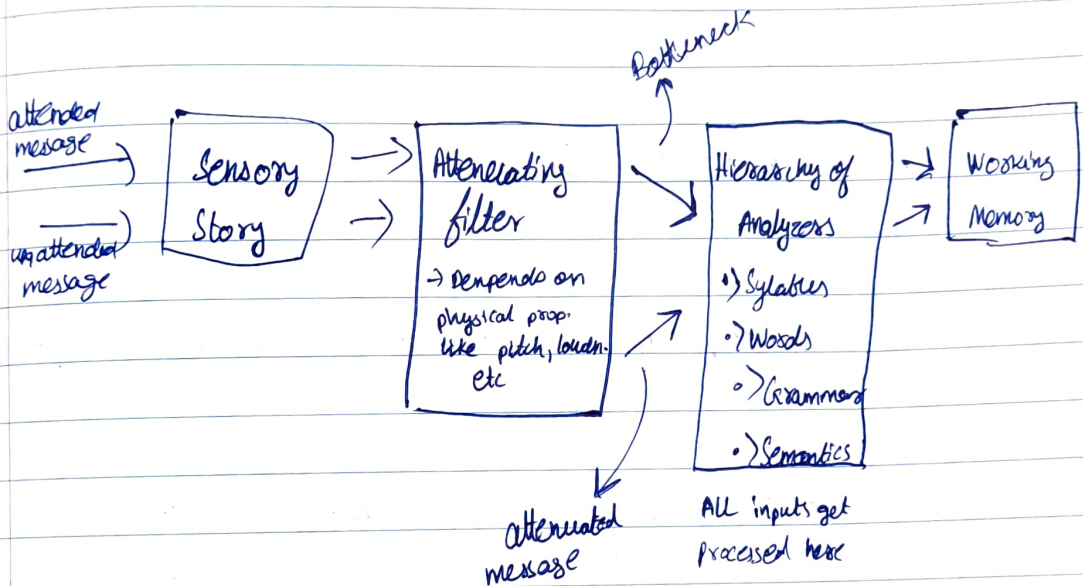 attended
message
unattended
message
Sensory
Story
Attenuating
filter
→ Dempends on
physical prop.
like pitch, loudn.
etc
Bottleneck
attenuated
message
Hierarchy of
Analyzers
•) Sylables
•) Words
•) Grammar
•) Semantics
All inputs get
processed here
Working
Memory